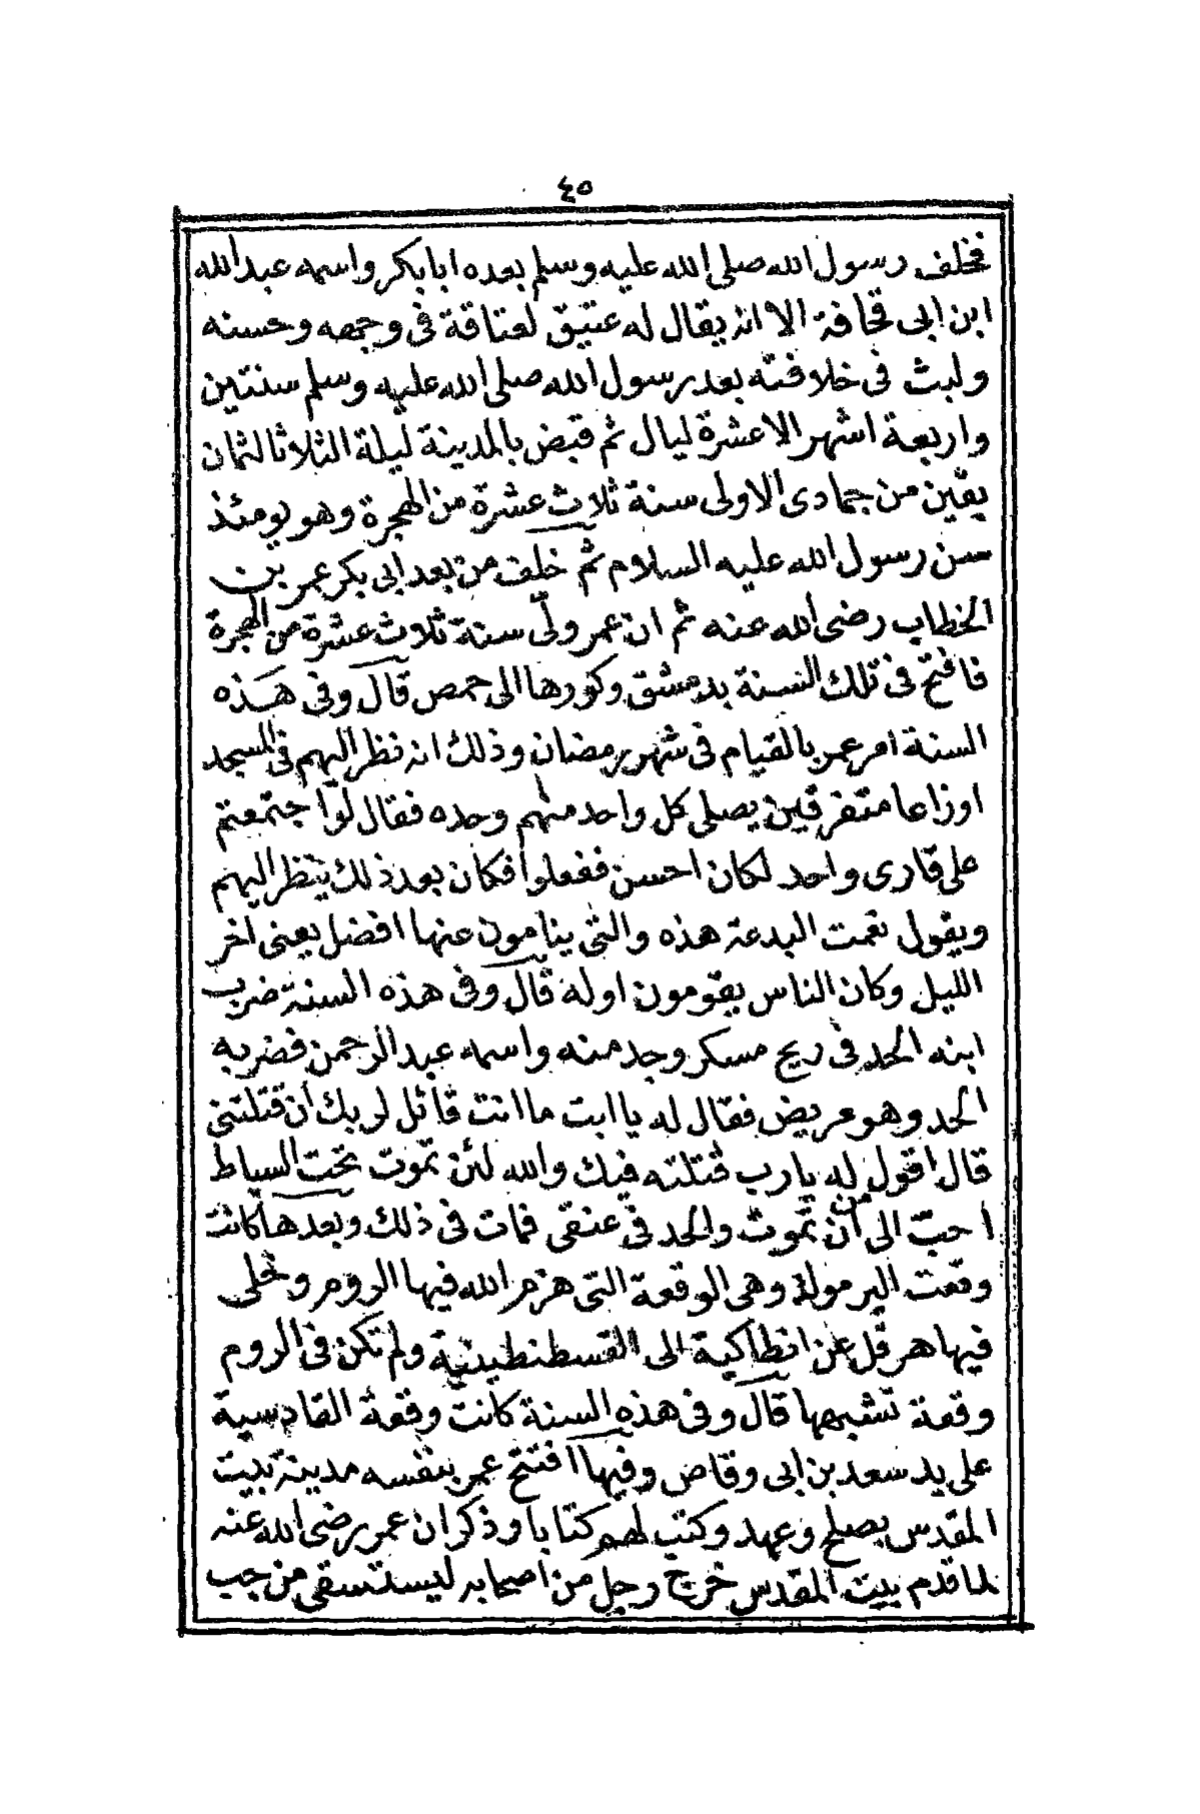 ٤٥
فخلف رسول الله صلى الله عليه وسلم بعده ابابكر واسمه عبد الله
ابن ابى قحافة الا انه يقال له عتيق لعتاقة فى وجهه وحسنه
ولبث فى خلافته بعد رسول الله صلى الله عليه وسلم سنتين
واربعة اشهر الاعشرة ليال ثم قبض بالمدينة ليلة الثلاثا لثمان
بقين من جمادى الاولى سنة ثلاث عشرة من الهجرة وهو يومئذ
سن رسول الله عليه السلام ثم خلف من بعد ابى بكر عمر بن
الخطاب رضى الله عنه ثم ان عمر ولّى سنة ثلاث عشرة من الهجرة
فافتح فى تلك السنة بدمشق وكورها الى حمص قال وفى هذه
السنة امر عمر بالقيام فى شهر رمضان وذلك انه نظر اليهم فى المسجد
اوزاعا متفرقين يصلى كل واحد منهم وحده فقال لوا جتمعتم
على قارى واحد لكان احسن ففعلوا فكان بعد ذلك ينظر اليهم
ويقول نعمت البدعة هذه والتى ينامون عنها افضل يعنى اخر
الليل وكان الناس يقومون اوله قال وفى هذه السنة ضرب
ابنه الحد فى ريح مسكر وجد منه واسمه عبد الرحمن فضربه
الحد وهو عريض فقال له يا ابت ما انت قائل لربك أن قتلتنى
قال اقول له يا رب قتلته فيك والله لئن تموت تحت السياط
احبّ الى من أن تموت والحد فى عنقى فمات فى ذلك وبعدها كانت
وقعت اليرموك وهى الوقعة التى هزم الله فيها الروم وتخلى
فيها هرقل عن انطاكية الى القسطنطينية ولم تكن فى الروم
وقعة تشبهها قال وفى هذه السنة كانت وقعة القادسية
على يد سعد بن ابى وقاص وفيها افتتح عمر بنفسه مدينة بيت
المقدس بصلح وعهد وكتب لهم كتابا وذكر ان عمر رضى الله عنه
لما قدم بيت المقدس خرج رجل من اصحابه ليستسقى من جب